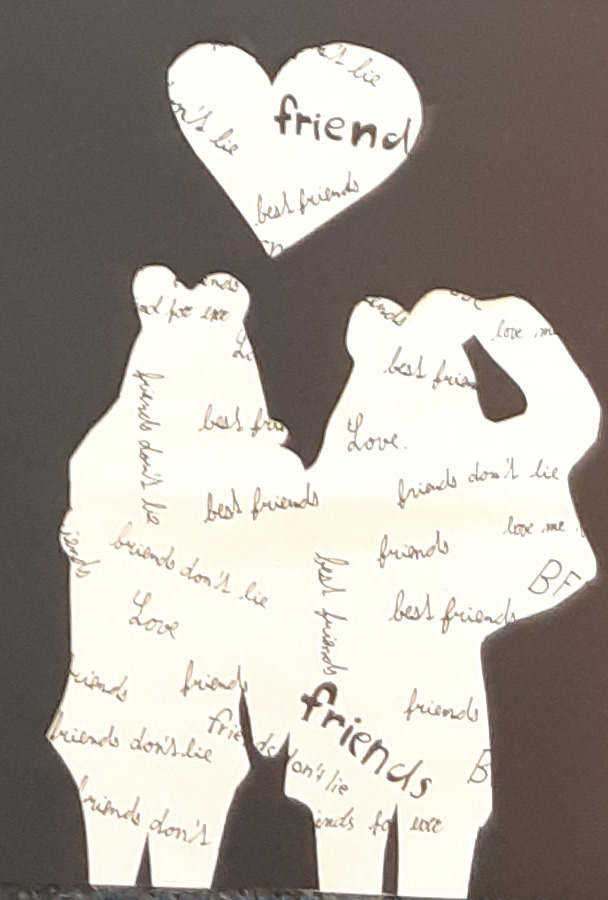 't lie
friend
don't lie
best friends
nds
nd for ever
Lo
ends
love me
best frien
best frie
Love.
friends don't lie
friends don't lie
best friends
love me
iends
friends
friends don't lie
best friends
BF
best friends
Love
friends
friends
friends
friends
friends don't lie
friends don't lie
B
friends don't
ends for ever